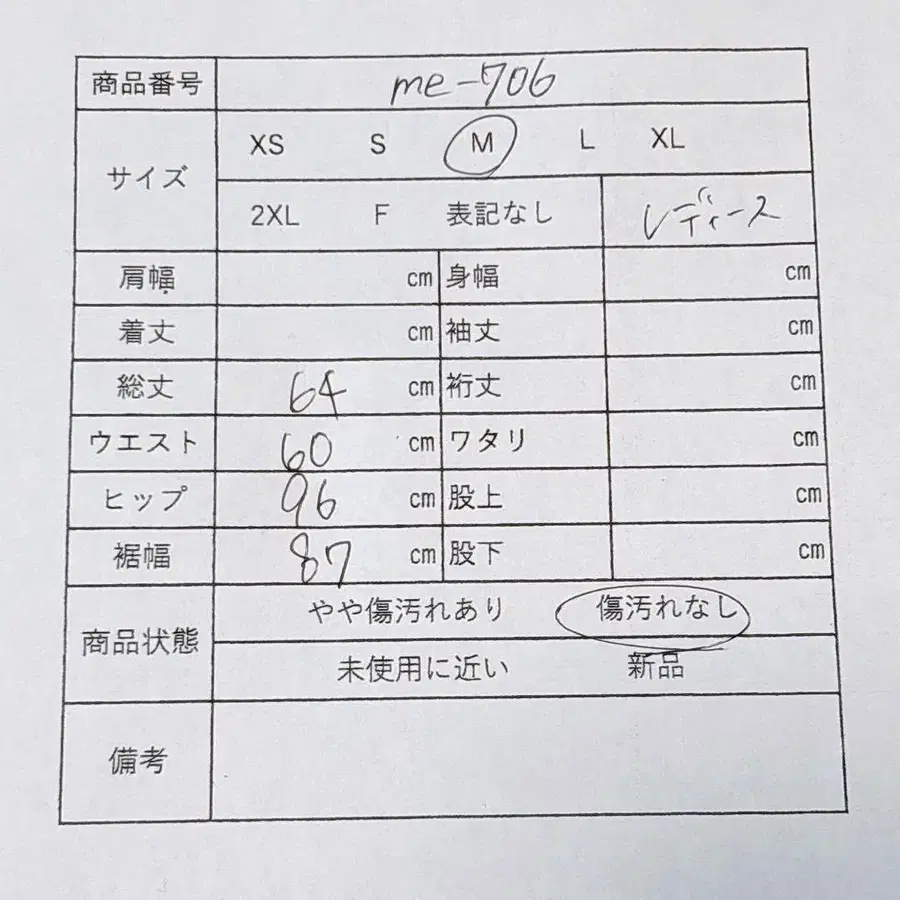 商品番号 me-706
サイズ XS S M L XL
2XL F 表記なし レディース
肩幅 cm 身幅 cm
着丈 cm 袖丈 cm
総丈 64 cm 裄丈 cm
ウエスト 60 cm ワタリ cm
ヒップ 96 cm 股上 cm
裾幅 87 cm 股下 cm
商品状態 やや傷汚れあり 傷汚れなし
未使用に近い 新品
備考